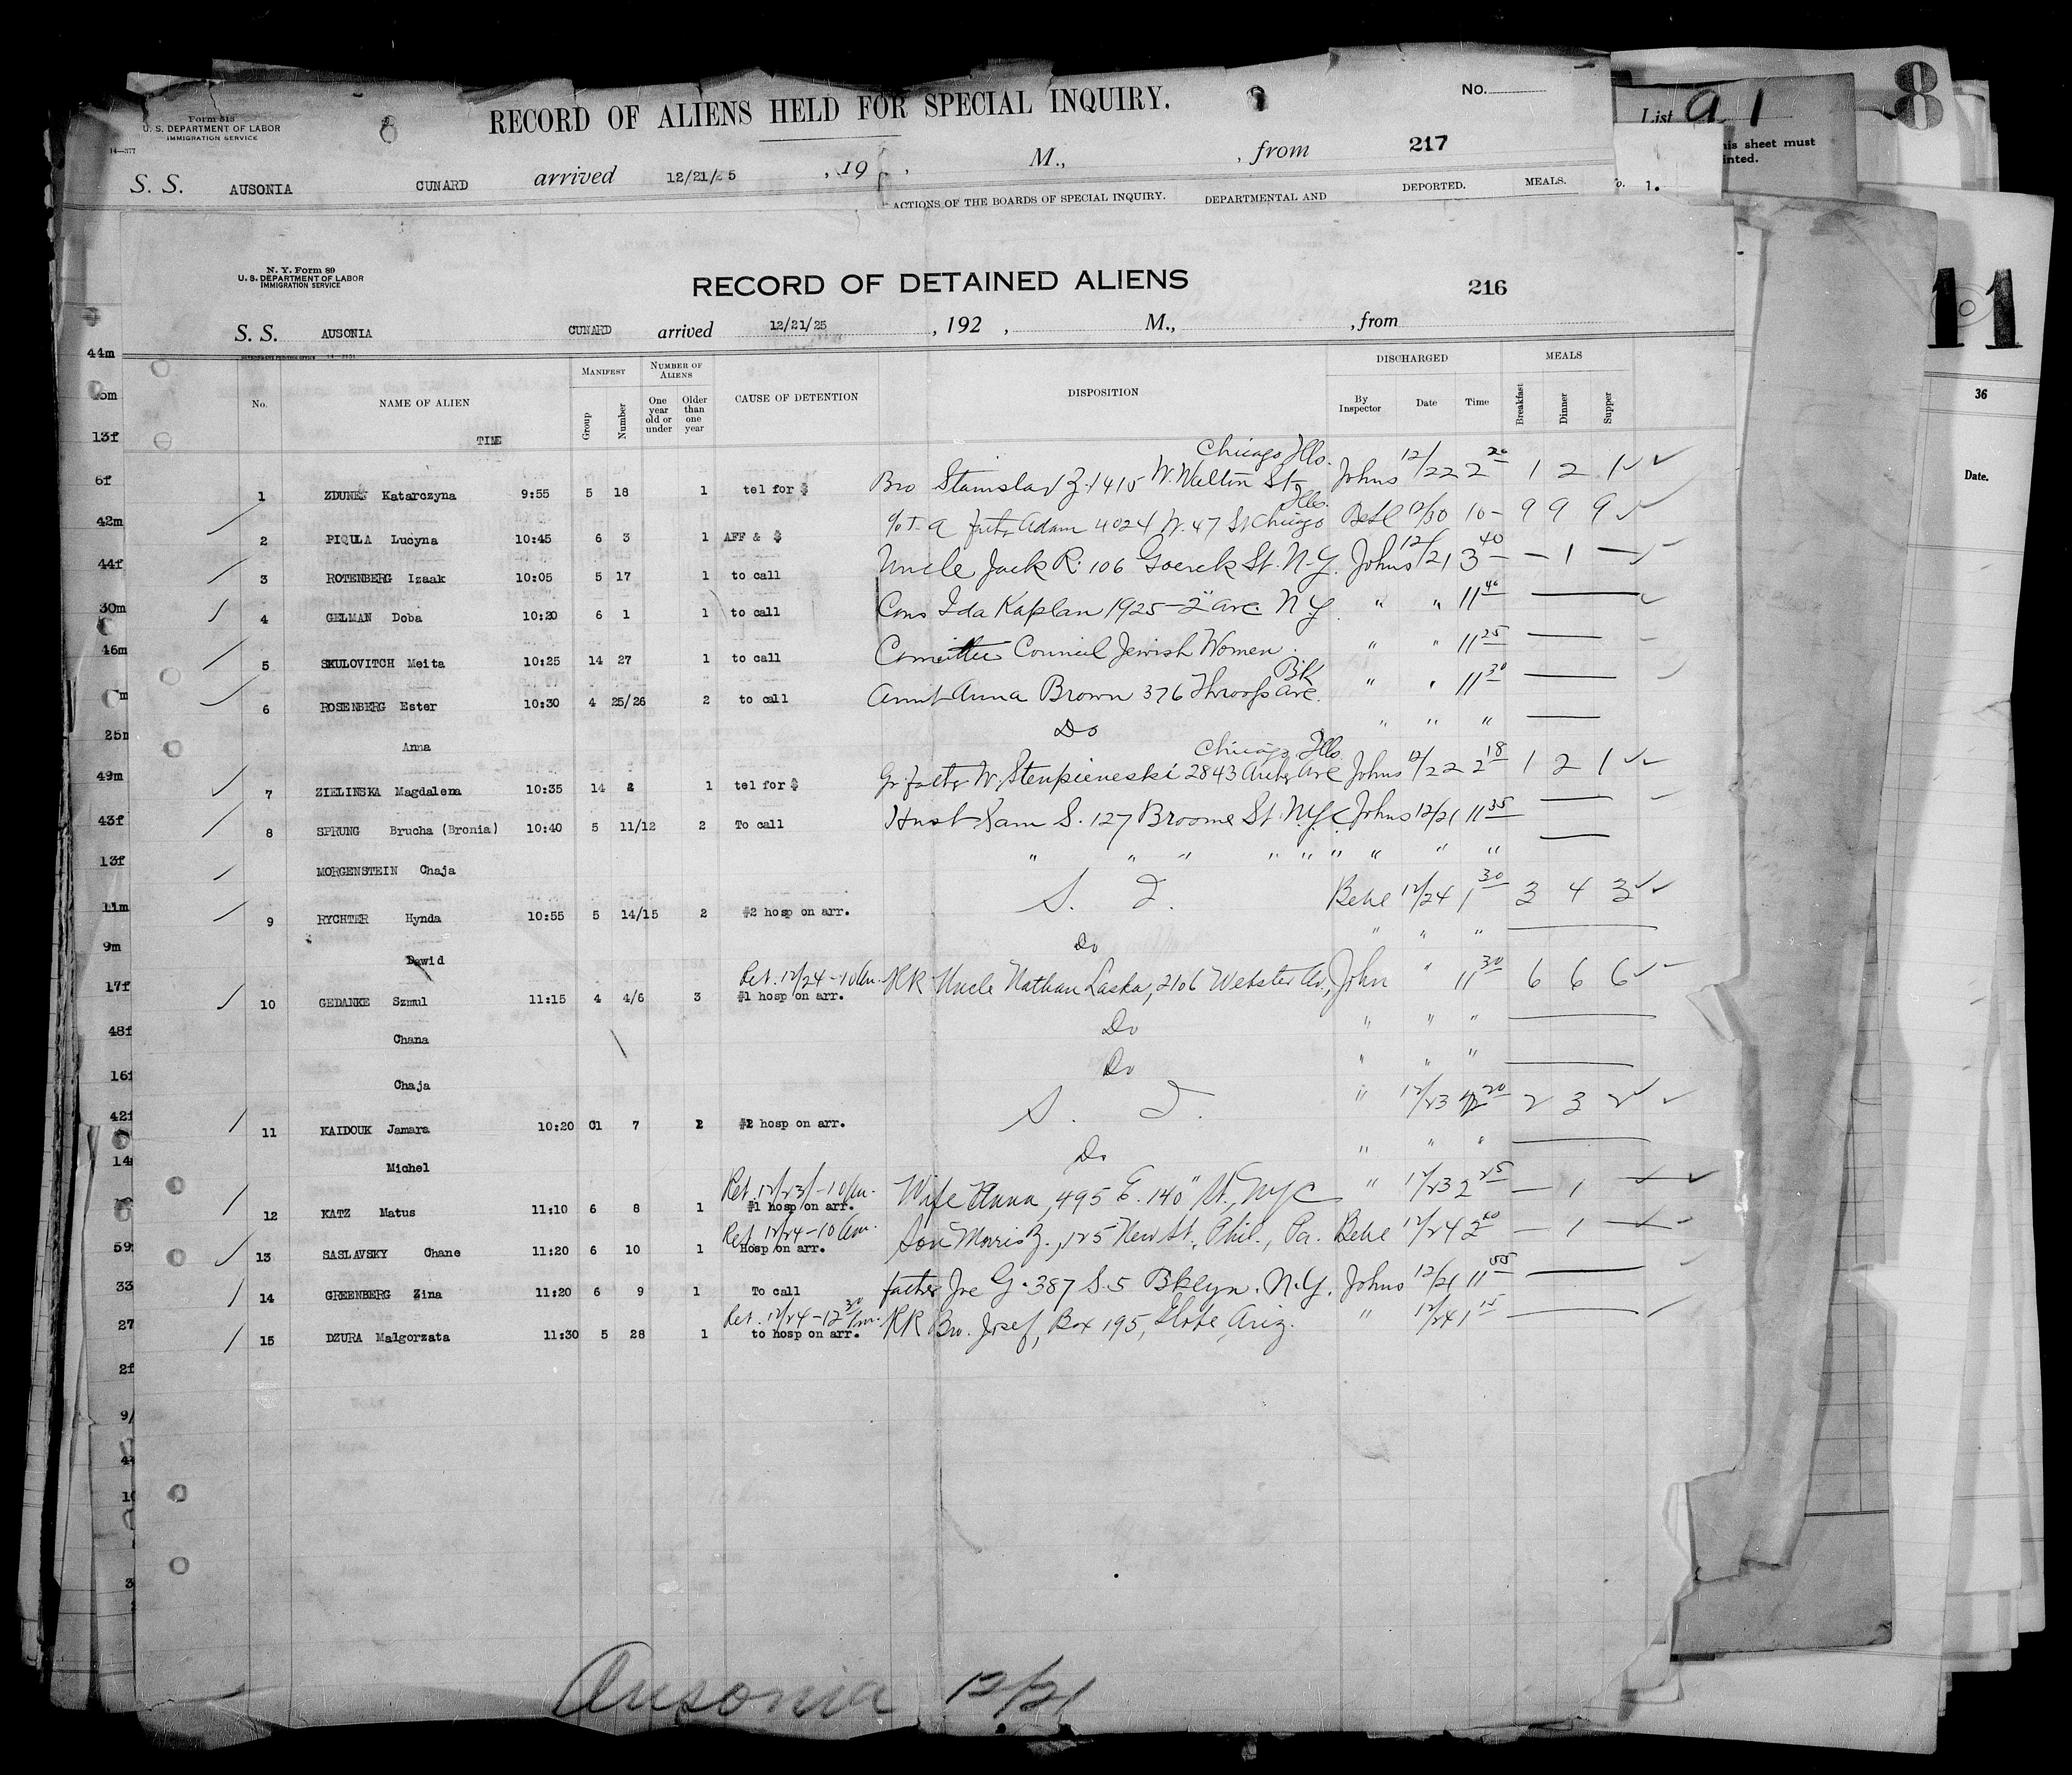 Form 513
U. S. DEPARTMENT OF LABOR
IMMIGRATION SERVICE
14—377
8
RECORD OF ALIENS HELD FOR SPECIAL INQUIRY.
No.
217
S. S. AUSONIA CUNARD arrived 12/21/25, 19 , M., , from
ACTIONS OF THE BOARDS OF SPECIAL INQUIRY. DEPARTMENTAL AND DEPORTED. MEALS.
List 91
8
his sheet must
inted.
o. 1.
11
36
Date.
N. Y. Form 89
U. S. DEPARTMENT OF LABOR
IMMIGRATION SERVICE
RECORD OF DETAINED ALIENS
216
S. S. AUSONIA CUNARD arrived 12/21/25 , 192 , M., , from
No. NAME OF ALIEN TIME MANIFEST Group Number NUMBER OF ALIENS One year old or under Older than one year CAUSE OF DETENTION DISPOSITION DISCHARGED By Inspector Date Time MEALS Breakfast Dinner Supper
1 ZDUNEY Katarczyna 9:55 5 18 1 tel for $ Bro Stanislav Z. 1415 W. Walton St Chicago Ills. Johns 12/22 2 20 1 2 1
2 PIQULA Lucyna 10:45 6 3 1 AFF & $ Adam 4024 W. 47 St Chicago Ills. 12/30 10- 9 9 9
3 ROTENBERG Izaak 10:05 5 17 1 to call Uncle Jack R. 106 Goerck St. N.Y. Johns 12/21 3 40 — 1 —
4 GELMAN Doba 10:20 6 1 1 to call Cous Ida Kaplan 1925-2" Ave N.Y. " " 11 40 —
5 SKULOVITCH Meita 10:25 14 27 1 to call Council Jewish Women. " " 11 25 —
6 ROSENBERG Ester 10:30 4 25/26 2 to call Aunt Anna Brown 376 Throop Ave. Bk " " 11 30 —
Anna Do " " " —
7 ZIELINSKA Magdalena 10:35 14 2 1 tel for $ Gr father W. Stenpieneski 2843 Archer Ave Chicago Ills Johns 12/22 2 18 1 2 1
8 SPRUNG Brucha (Bronia) 10:40 5 11/12 2 To call Husb Sam S. 127 Broome St. N.Y.C. Johns 12/21 11 35 —
MORGENSTEIN Chaja " " " " " " " " " —
9 RYCHTER Hynda 10:55 5 14/15 2 #2 hosp on arr. S. I. Behe 12/24 1 30 3 4 3
Dawid Do " " " —
Ret. 12/24-10 Am.
10 GEDANKE Szmul 11:15 4 4/6 3 #1 hosp on arr. RR Uncle Nathan Laska, 2106 Webster Av, John " 11 30 6 6 6
Chana Do " " " —
Chaja Do " " " —
11 KAIDOUK Jamara 10:20 C1 7 2 #2 hosp on arr. S. I. " 12/23 20 2 3 2
Michel Do " " " —
Ret. 12/23/-10 Am.
12 KATZ Matus 11:10 6 8 1 #1 hosp on arr. Wife Anna, 495 E. 140" St., NYC " 12/23 2 25 — 1 —
Ret. 12/24-10 Am.
13 SASLAVSKY Chane 11:20 6 10 1 Hosp on arr. Son Morris Z., 125 New St., Phil., Pa. Behe 12/24 2 — 1 —
14 GREENBERG Zina 11:20 6 9 1 To call father Joe G. 387 S. 5 Bklyn. N.Y. Johns 12/21 11 55 —
Ret. 12/24-12 30 Pm.
15 DZURA Malgorzata 11:30 5 28 1 to hosp on arr. RR Bro. Josef, Box 195, Globe, Ariz. " 12/24 1 15 —
44m
13f
6f
42m
44f
30m
46m
49m
43f
13f
11m
9m
17f
48f
Ausonia 12/21